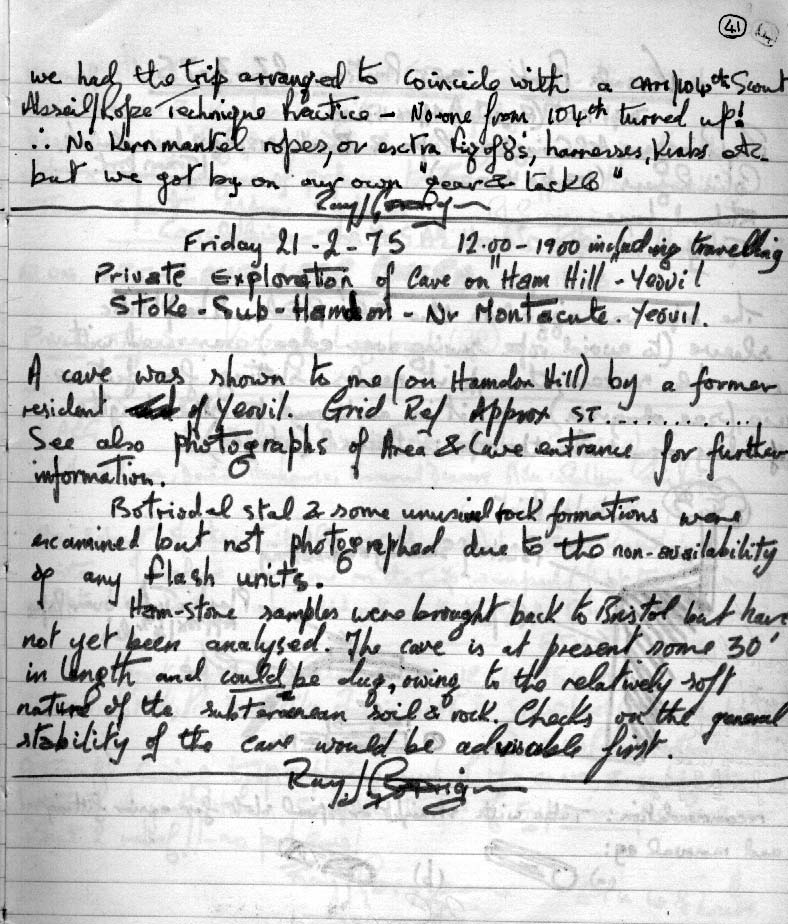 41
we had the trip arranged to coincide with a 104th Scout
Abseil/Rope Technique Practice - No-one from 104th turned up!
∴ No Kernmantel ropes, or exctra fig of 8's, harnesses, Krabs etc.
but we got by on our own "gear & tackle"
Ray
Friday 21-2-75 12.00-1900 including travelling
Private Exploration of Cave on "Ham Hill" - Yeovil
Stoke-Sub-Hamdon - Nr Montacute. Yeovil.
A cave was shown to me (on Hamdon Hill) by a former
resident of Yeovil. Grid Ref Approx ST..............
See also photographs of Area & Cave entrance for further
information.
Botriodal stal & some unusual rock formations were
examined but not photographed due to the non-availability
of any flash units.
Ham-stone samples were brought back to Bristol but have
not yet been analysed. The cave is at present some 30'
in length and could be dug, owing to the relatively soft
nature of the subterranean soil & rock. Checks on the general
stability of the cave would be advisable first.
Ray